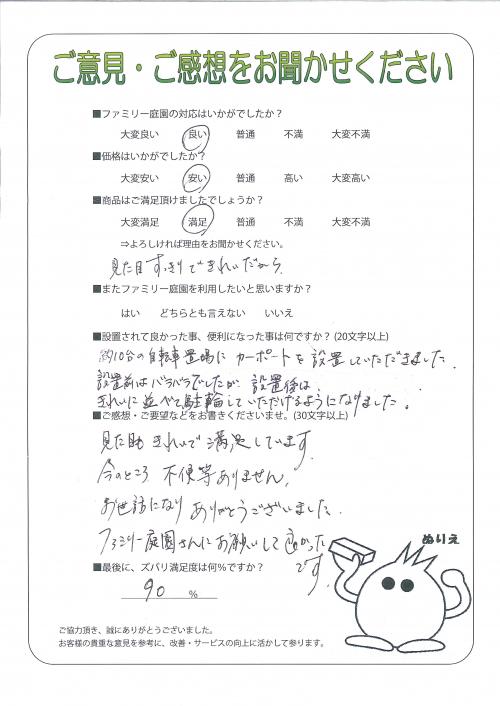 ご意見・ご感想をお聞かせください
■ファミリー庭園の対応はいかがでしたか？
大変良い 良い 普通 不満 大変不満
■価格はいかがでしたか？
大変安い 安い 普通 高い 大変高い
■商品はご満足頂けましたでしょうか？
大変満足 満足 普通 不満 大変不満
⇒よろしければ理由をお聞かせください。
見た目すっきりできれいだから
■またファミリー庭園を利用したいと思いますか？
はい どちらとも言えない いいえ
■設置されて良かった事、便利になった事は何ですか？ (20文字以上)
約10台の自転車置場にカーポートを設置していただきました。
設置前はバラバラでしたが設置後は、
きれいに並べて駐輪していただけるようになりました。
■ご感想・ご要望などをお書きくださいませ。(30文字以上)
見た目もきれいで満足しています。
今のところ不便等ありません。
お世話になりありがとうございました。
ファミリー庭園さんにお願いして良かった
です。
ぬりえ
■最後に、ズバリ満足度は何％ですか？
90 ％
ご協力頂き、誠にありがとうございました。
お客様の貴重な意見を参考に、改善・サービスの向上に活かして参ります。